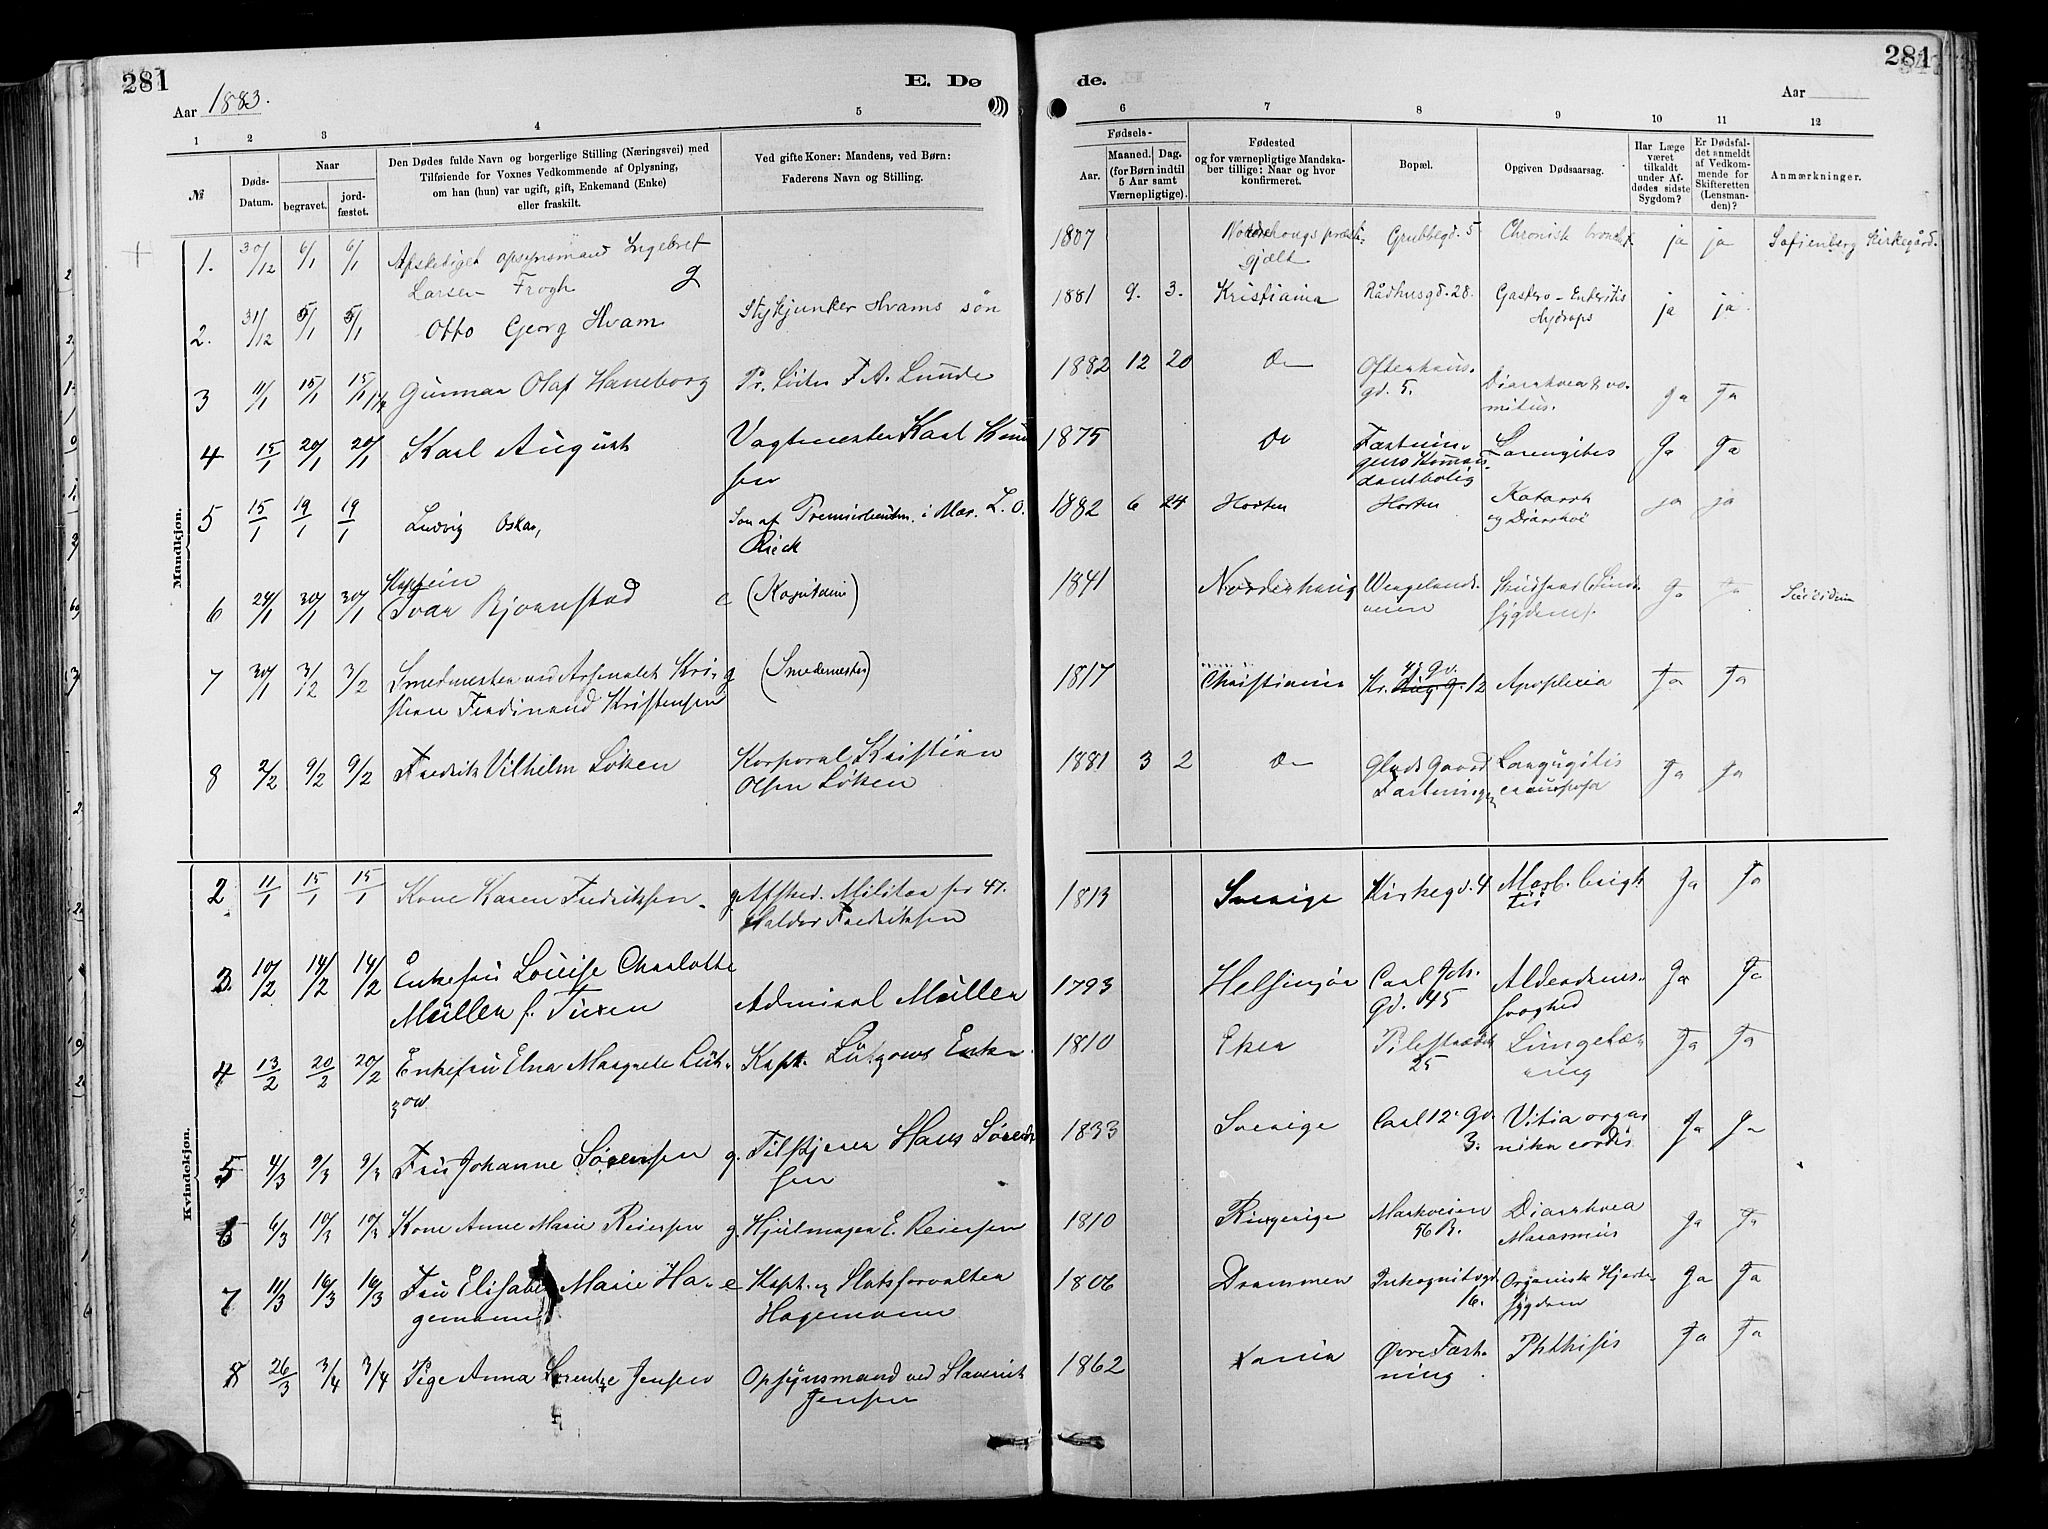 281
Aar 1883.
E. Dø
1 2 3 4 5
№
Døds-Datum.
Naar
begravet.
jord-fæstet.
Den Dødes fulde Navn og borgerlige Stilling (Næringsvei) med
Tilføiende for Voxnes Vedkommende af Oplysning,
om han (hun) var ugift, gift, Enkemand (Enke)
eller fraskilt.
Ved gifte Koner: Mandens, ved Børn:
Faderens Navn og Stilling.
Mandkjøn.
1. 30/12 6/1 6/1 Afskediget opsynsmand Ingebret
Larsen Frogh g
2. 31/12 5/1 5/1 Otto Georg Hvam Stykjunker Hvams søn
3 11/1 15/1 15/1 Gunnar Olaf Haneborg Pr. Løitn F. A. Lunde
4 15/1 20/1 20/1 Karl August Vagtmester Karl Knud
sen
5 15/1 19/1 19/1 Ludvig Oskar, Søn af Premierløitn. i Mar. L. O.
Rieck
6 24/1 30/1 30/1 Kaptein
Ivar Bjørnstad e (Kapitain)
7 30/1 3/2 3/2 Smedmester ved Arsenalet Kri- g (Smedemester)
stian Ferdinand Kristensen
8 2/2 9/2 9/2 Fredrik Vilhelm Løken Korporal Kristian
Olsen Løken
Kvindekjøn.
2 11/1 15/1 15/1 Kone Karen Fredriksen g Afsked. Militær fr 47.
Haldor Fredriksen
3. 10/2 14/2 14/2 Enkefru Louise Charlotte
Müller f. Tuxen Admiral Müller
4 13/2 20/2 20/2 Enkefru Elna Margrete Lüt-
zow Kapt. Lützows Enke
5 4/3 9/3 9/3 Fru Johanne Sørensen g. Tilskjærer Hans Søren
sen
6 6/3 10/3 10/3 Kone Anne Marie Reiersen g. Hjulmager E. Reiersen
7 11/3 16/3 16/3 Fru Elisabet Marie Ha- e Kapt. og Slotsforvalter
gemann Hagemann
8 26/3 3/4 3/4 Pige Anna Lorentze Jensen Opsynsmand ved Slaveriet
Jensen
281
de.
Aar
6 7 8 9 10 11 12
Fødsels-
Aar.
Maaned. Dag.
(for Børn indtil
5 Aar samt
Værnepligtige).
Fødested
og for værnepligtige Mandska-
ber tillige: Naar og hvor
konfirmeret.
Bopæl.
Opgiven Dødsaarsag.
Har Læge
været
tilkaldt
under Af-
dødes sidste
Sygdom?
Er Dødsfal-
det anmeldt
af Vedkom-
mende for
Skifteretten
(Lensman-
den)?
Anmærkninger.
1807 Norderhougs præste-
gjæld Grubbegd. 5 Chronisk bronchit. ja ja Sofienberg Kirkegård.
1881 9. 3. Kristiania Rådhusgd. 28. Gastero-Enteritis
Hydrops ja ja
1882 12 20 Do Oftenhaus-
gd. 5. Diarrhoea & vo-
mitus. Ja Ja
1875 Do Fæstnin-
gens Komman-
dantbolig Larengites Ja Ja
1882 6 24 Horten Horten Katarrh
og Diarrhoe ja ja
1841 Norderhaug Wergelands-
veien Ja Ja
1817 Christiania Kr. 4s Gd. 12 Apoplexia Ja Ja
1881 3 2 Do Glads Gaard
Fæstningen Laryngitis
crouposa Ja Ja
1813 Sverige Kirkegd. 4 Morb. brigh
tii Ja Ja
1793 Helsingør Carl Joh.
Gd. 45 Alderdoms-
svaghed Ja Ja
1810 Eker Pilestrædet
25 Lungetæ-
ring Ja Ja
1833 Sverige Carl 12s Gd.
3. Vitia orga-
nika cordis Ja Ja
1810 Ringerige Markveien
56 B. Diarrhoea
Marasmus Ja Ja
1806 Drammen Inkognitogd.
16. Organisk Hjerte-
sygdom Ja Ja
1862 Xania Øvre Fæst-
ning Phthisis Ja Ja